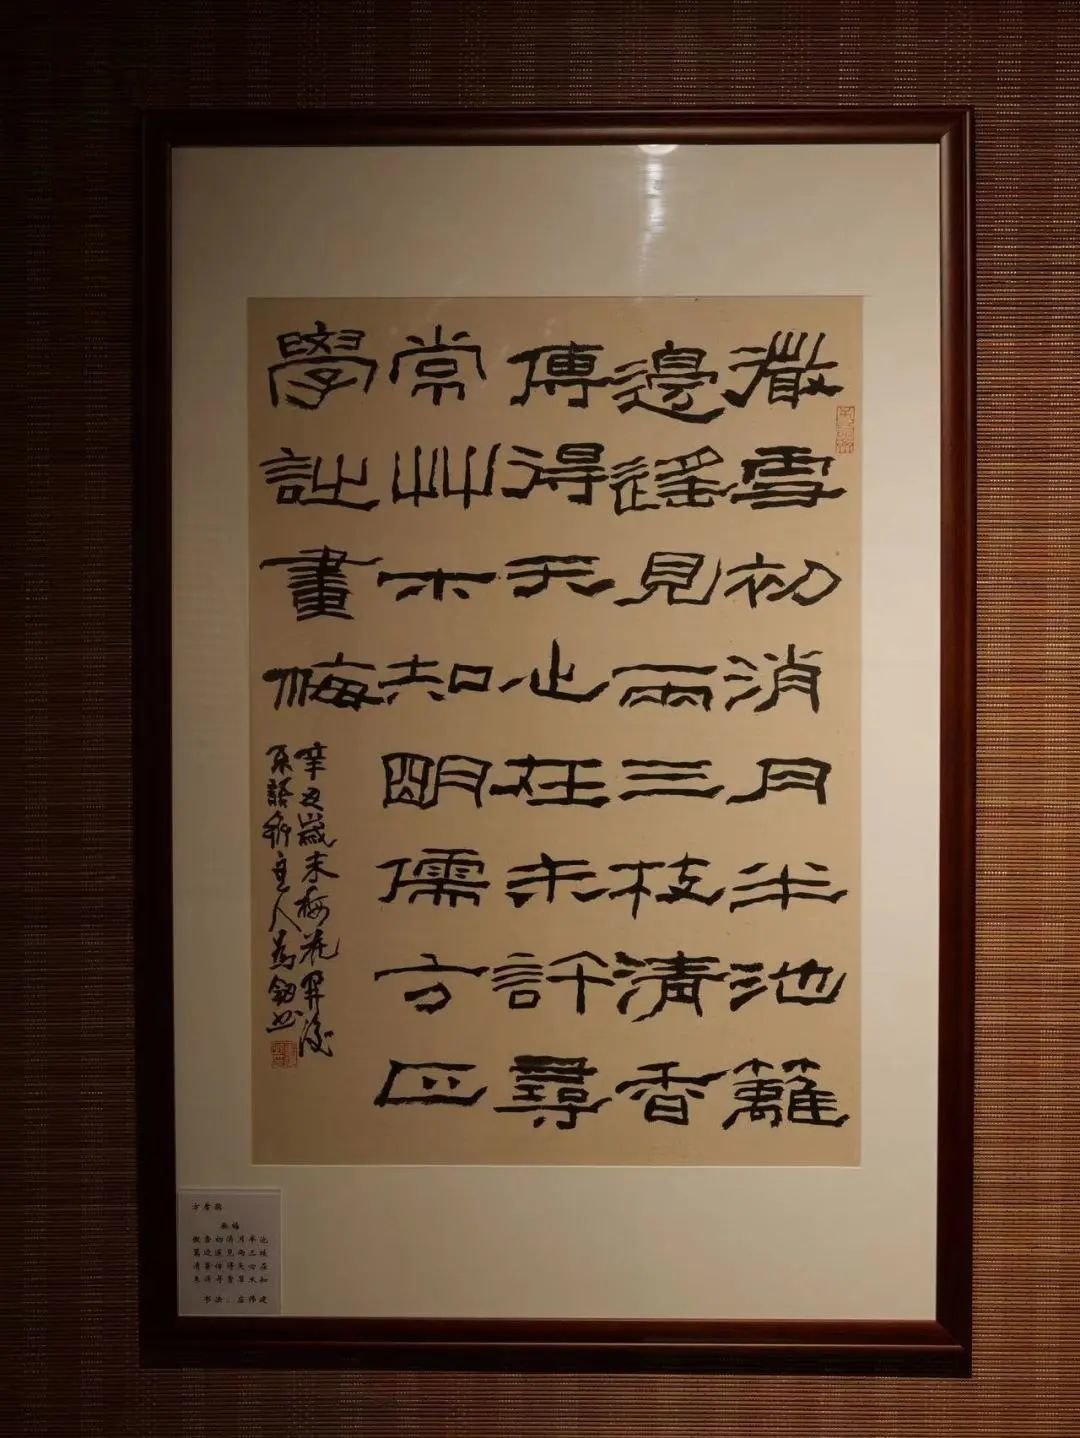 微雪初消月半池籬
邊遙見兩三枝清香
傳得天心在未許尋
常艸木知明儒方正
學詩畫梅
辛丑歲末梅花開後
主人
方孝孺
画梅
微雪初消月半池
篱边遥见两三枝
清香传得天心在
未许寻常草木知
书法：庄伟建